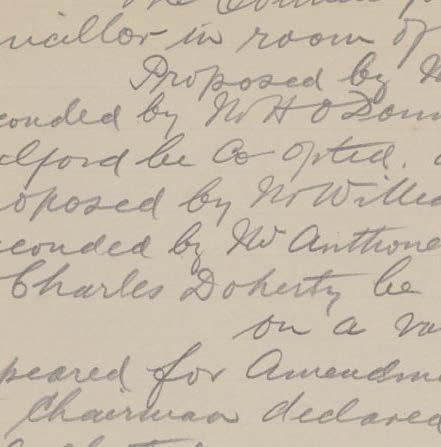 The Council
ncillor in room of
Proposed by M
conded by Mr H O'Donn
lford be Co opted.
oposed by Mr Willia
econded by Mr Anthone
Charles Doherty be
on a vo
peared for Amendme
Chairman declared